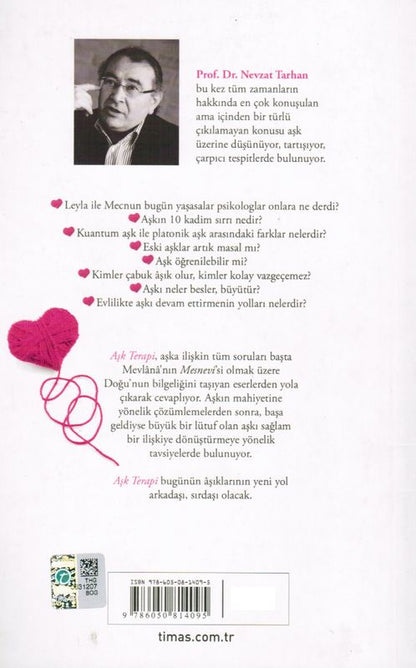 Prof. Dr. Nevzat Tarhan
bu kez tüm zamanların
hakkında en çok konuşulan
ama içinden bir türlü
çıkılamayan konusu aşk
üzerine düşünüyor, tartışıyor,
çarpıcı tespitlerde bulunuyor.
Leyla ile Mecnun bugün yaşasalar psikologlar onlara ne derdi?
Aşkın 10 kadim sırrı nedir?
Kuantum aşk ile platonik aşk arasındaki farklar nelerdir?
Eski aşklar artık masal mı?
Aşk öğrenilebilir mi?
Kimler çabuk âşık olur, kimler kolay vazgeçemez?
Aşkı neler besler, büyütür?
Evlilikte aşkı devam ettirmenin yolları nelerdir?
Aşk Terapi, aşka ilişkin tüm soruları başta
Mevlânâ'nın Mesnevi'si olmak üzere
Doğu'nun bilgeliğini taşıyan eserlerden yola
çıkarak cevaplıyor. Aşkın mahiyetine
yönelik çözümlemelerden sonra, başa
geldiyse büyük bir lütuf olan aşkı sağlam
bir ilişkiye dönüştürmeye yönelik
tavsiyelerde bulunuyor.
Aşk Terapi bugünün âşıklarının yeni yol
arkadaşı, sırdaşı olacak.
THG
631207
BOG
ISBN 978-605-08-1409-5
9 786050 814095
timas.com.tr